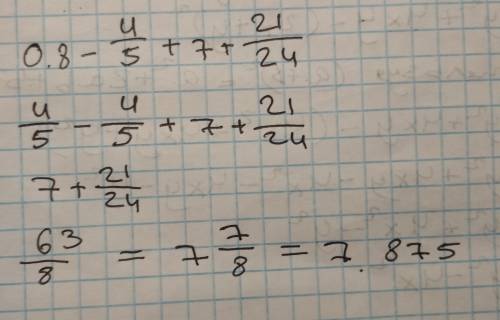 0.8 - 4/5 + 7 + 21/24
4/5 - 4/5 + 7 + 21/24
7 + 21/24
63/8 = 7 7/8 = 7.875